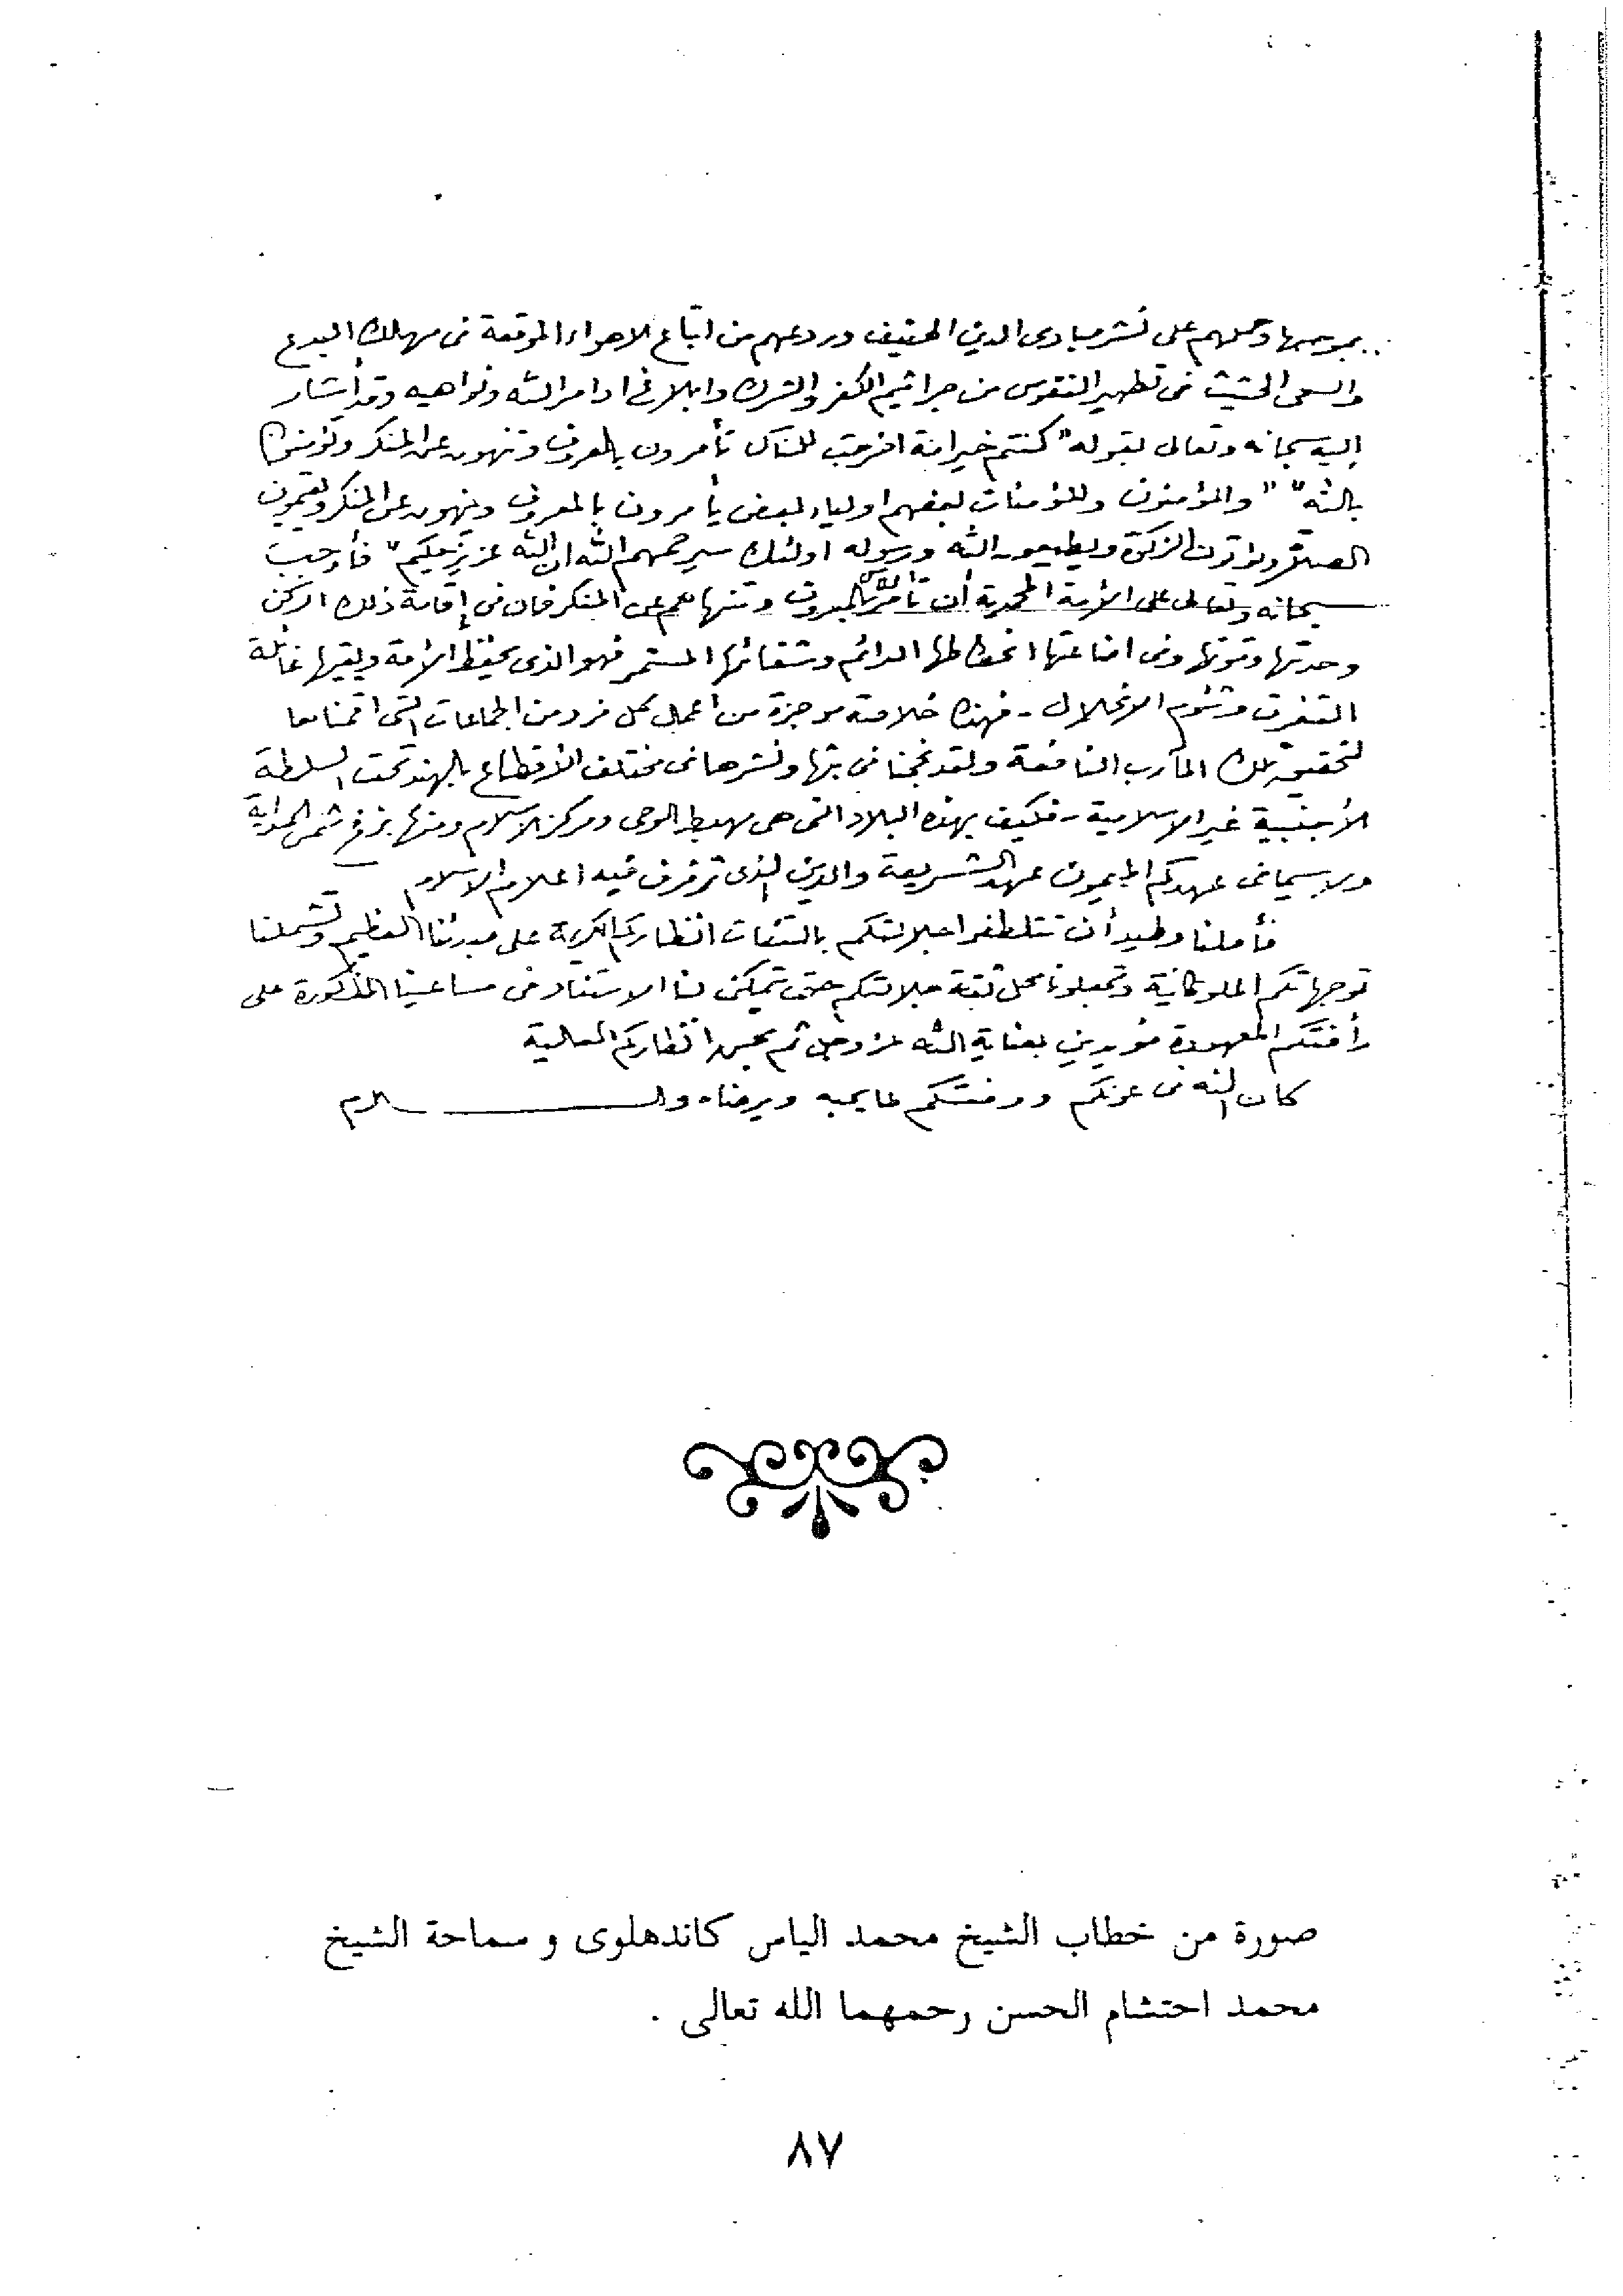 بموجبها وحملهم على نشر مبادى الدين الحنيف وردعهم من اتباع الاهواء الموقعة فى مهالك البدع
والسعى الحثيث فى تطهير النفوس من جراثيم الكفر والشرك وابلاغ اوامر الله ونواهيه وقد أشار
اليه سبحانه وتعالى بقوله "كنتم خير امة اخرجت للناس تأمرون بالمعروف وتنهون عن المنكر وتؤمنون
بالله" "والمؤمنون والمؤمنات بعضهم اولياء بعض يأمرون بالمعروف وينهون عن المنكر ويقيمون
الصلوة ويؤتون الزكوة ويطيعون الله ورسوله اولئك سيرحمهم الله ان الله عزيز حكيم" فأوجب
سبحانه وتعالى على الأمة المحمدية أن تأمر الناس بالمعروف وتنهاهم عن المنكر فان فى إقامة ذلك الركن
وحدتها وقوتها وفى اضاعتها انحطاطها الدائم وشقائها المستمر فهو الذى يحفظ الأمة ويقيها غائلة
التفرق وشؤم الانحلال - فهذه خلاصة موجزة من أعمال كل فرد من الجماعات التى اقمناها
لتحقيق تلك المآرب النافعة ولقد نجحنا فى بثها ونشرها فى مختلف الأقطاع بالهند تحت السلطة
الأجنبية غير الاسلامية - فكيف بهذه البلاد التى هى مهبط الوحى ومركز الاسلام ومنها بزغ شمس الهداية
ولا سيما فى عهدكم الميمون عهد الشريعة والدين الذى ترفرف فيه اعلام الاسلام
فأملنا وطيد أن تتلطفوا جلالتكم بالتفات انظاركم الكريمة على مبدئنا العظيم وتشملنا
توجهاتكم الملوكانية وتجعلونا محل ثقة جلالتكم حتى تمكن لنا الاستناد فى مساعينا المذكورة على
رأفتكم المعهودة مؤيدين بعناية الله عز وجل ثم بحسن انظاركم العالية
كان الله فى عونكم ووفقكم لما يحبه ويرضاه والسلام
صورة من خطاب الشيخ محمد الياس كاندهلوى و سماحة الشيخ
محمد احتشام الحسن رحمهما الله تعالى .
٨٧